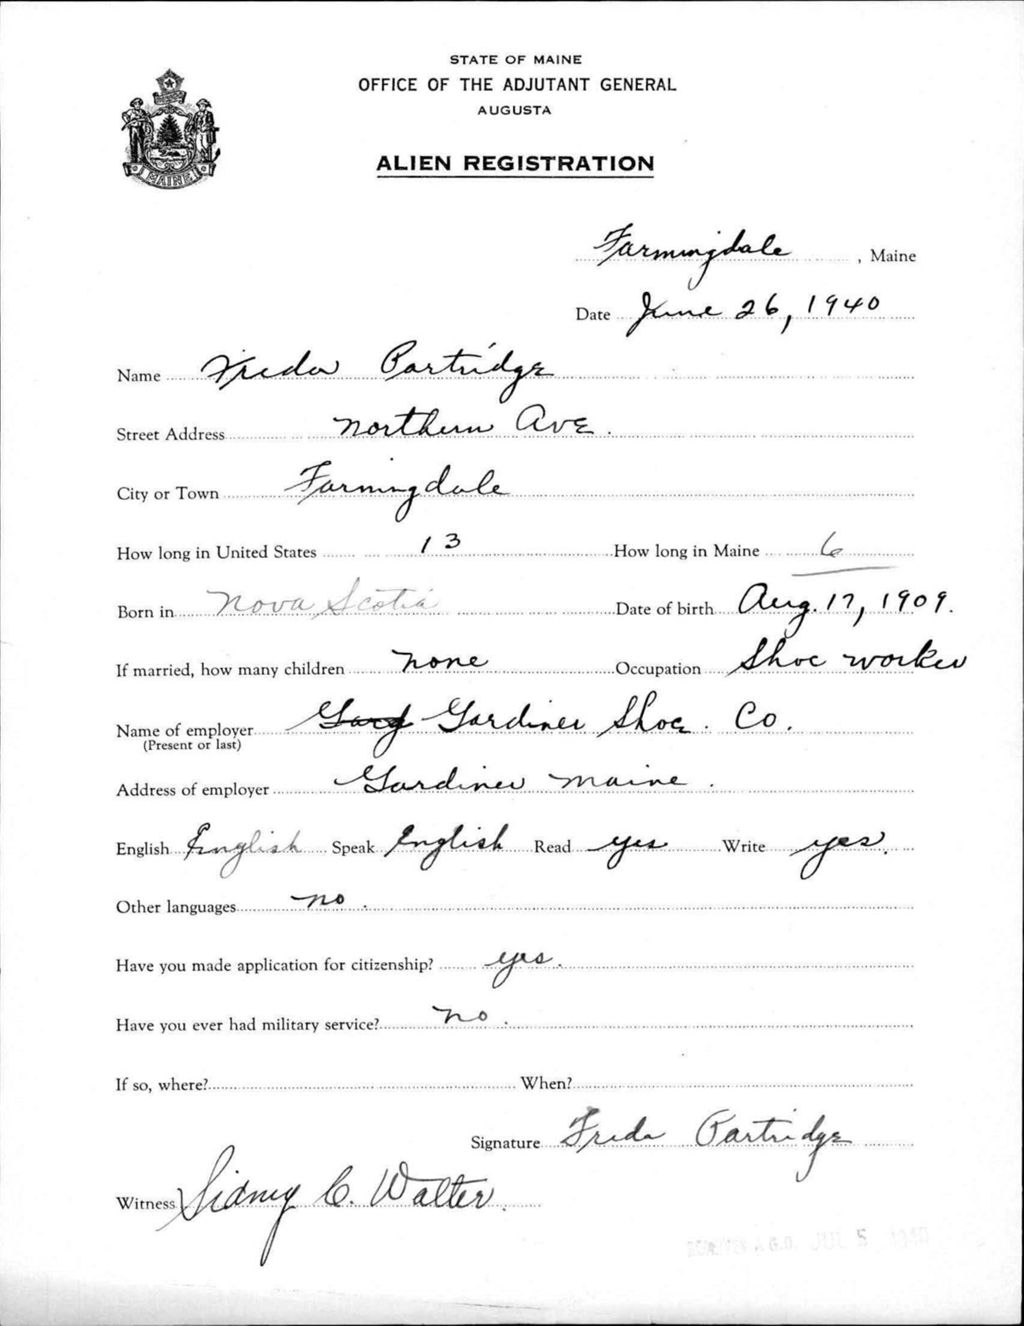 STATE OF MAINE
OFFICE OF THE ADJUTANT GENERAL
AUGUSTA
MAINE
ALIEN REGISTRATION
Farmingdale, Maine
Date June 26, 1940
Name Freda Partridge
Street Address Northern Ave.
City or Town Farmingdale
How long in United States 13 How long in Maine 6
Born in Nova Scotia Date of birth Aug. 17, 1909.
If married, how many children none Occupation Shoe worker
Name of employer Gardiner Shoe. Co.
(Present or last)
Address of employer Gardiner Maine.
English English Speak English Read yes Write yes.
Other languages no.
Have you made application for citizenship? yes.
Have you ever had military service? no.
If so, where? When?
Signature Freda Partridge
Witness Sidney C. Walter.
RECEIVED A.G.O. JUL 5 1940